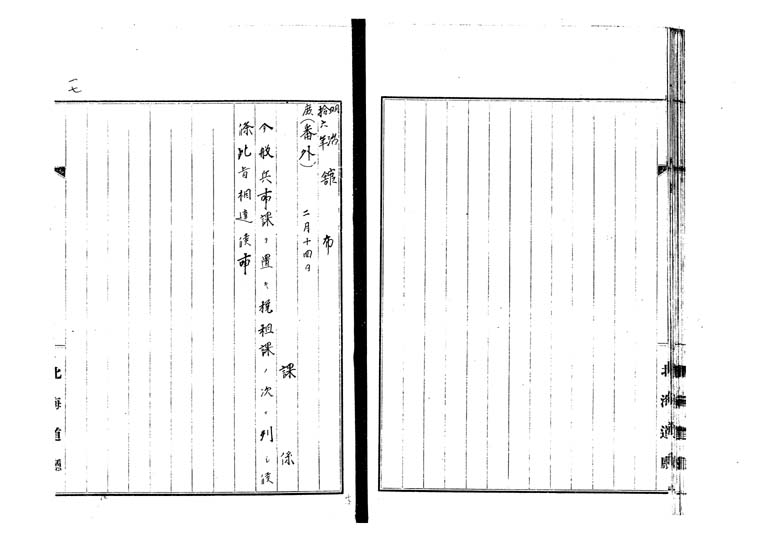 明治
拾六年
舘布
庶(番外)
二月十四日
課 係
今般兵事課ヲ置キ税租課ノ次ニ列シ候
条此旨相達候事
一七
北海道廳
北海道廳